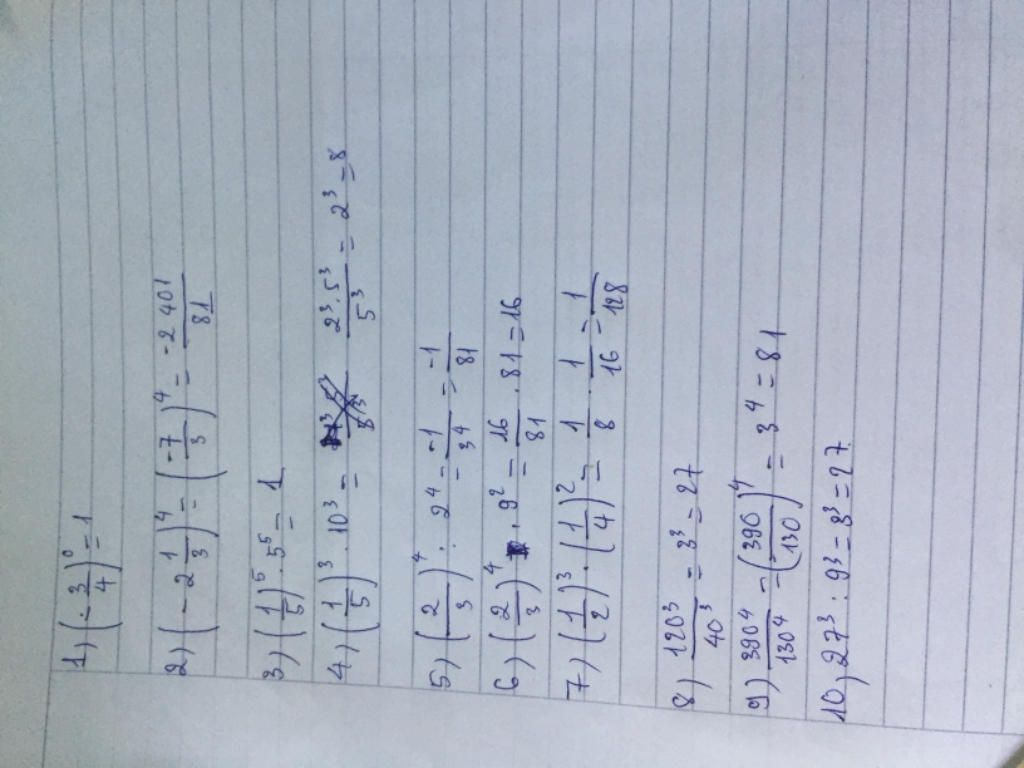 1) (-3/4)^0 = 1
2) (-2 1/3)^4 = (-7/3)^4 = -2401/81
3) (1/5)^5 . 5^5 = 1
4) (1/5)^3 . 10^3 = 2^3.5^3/5^3 = 2^3 = 8
5) (2/3)^4 : 2^4 = -1/3^4 = -1/81
6) (2/3)^4 . 9^2 = 16/81 . 81 = 16
7) (1/2)^3 . (1/4)^2 = 1/8 . 1/16 = 1/128
8) 120^3/40^3 = 3^3 = 27
9) 390^4/130^4 = (390/130)^4 = 3^4 = 81
10) 27^3 : 9^3 = 3^3 = 27